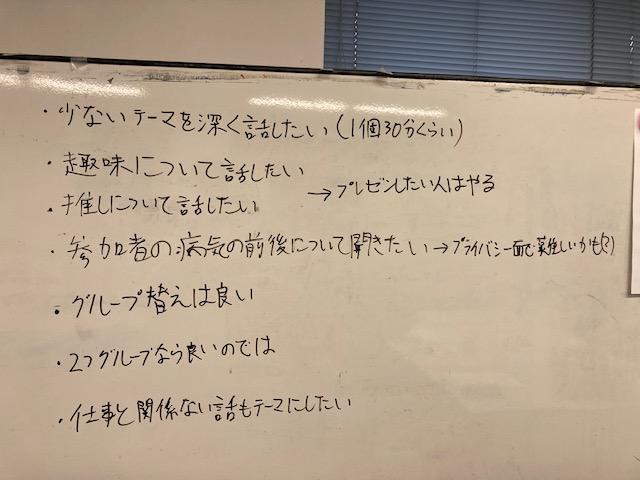 ・少ないテーマを深く話したい(1個30分くらい)
・趣味について話したい
→プレゼンしたい人はやる
・推しについて話したい
・参加者の病気の前後について聞きたい→プライバシー面で難しいかも(?)
・グループ替えは良い
・2つグループなら良いのでは
・仕事と関係ない話もテーマにしたい